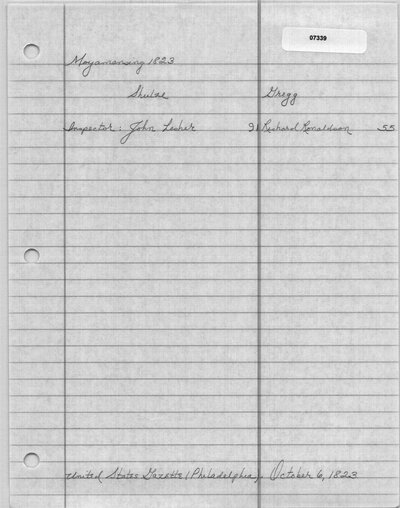 07339
Moyamensing 1823
Shulze Gregg
Inspector: John Lesher 91 Richard Ronaldson 55
United States Gazette (Philadelphia). October 6, 1823